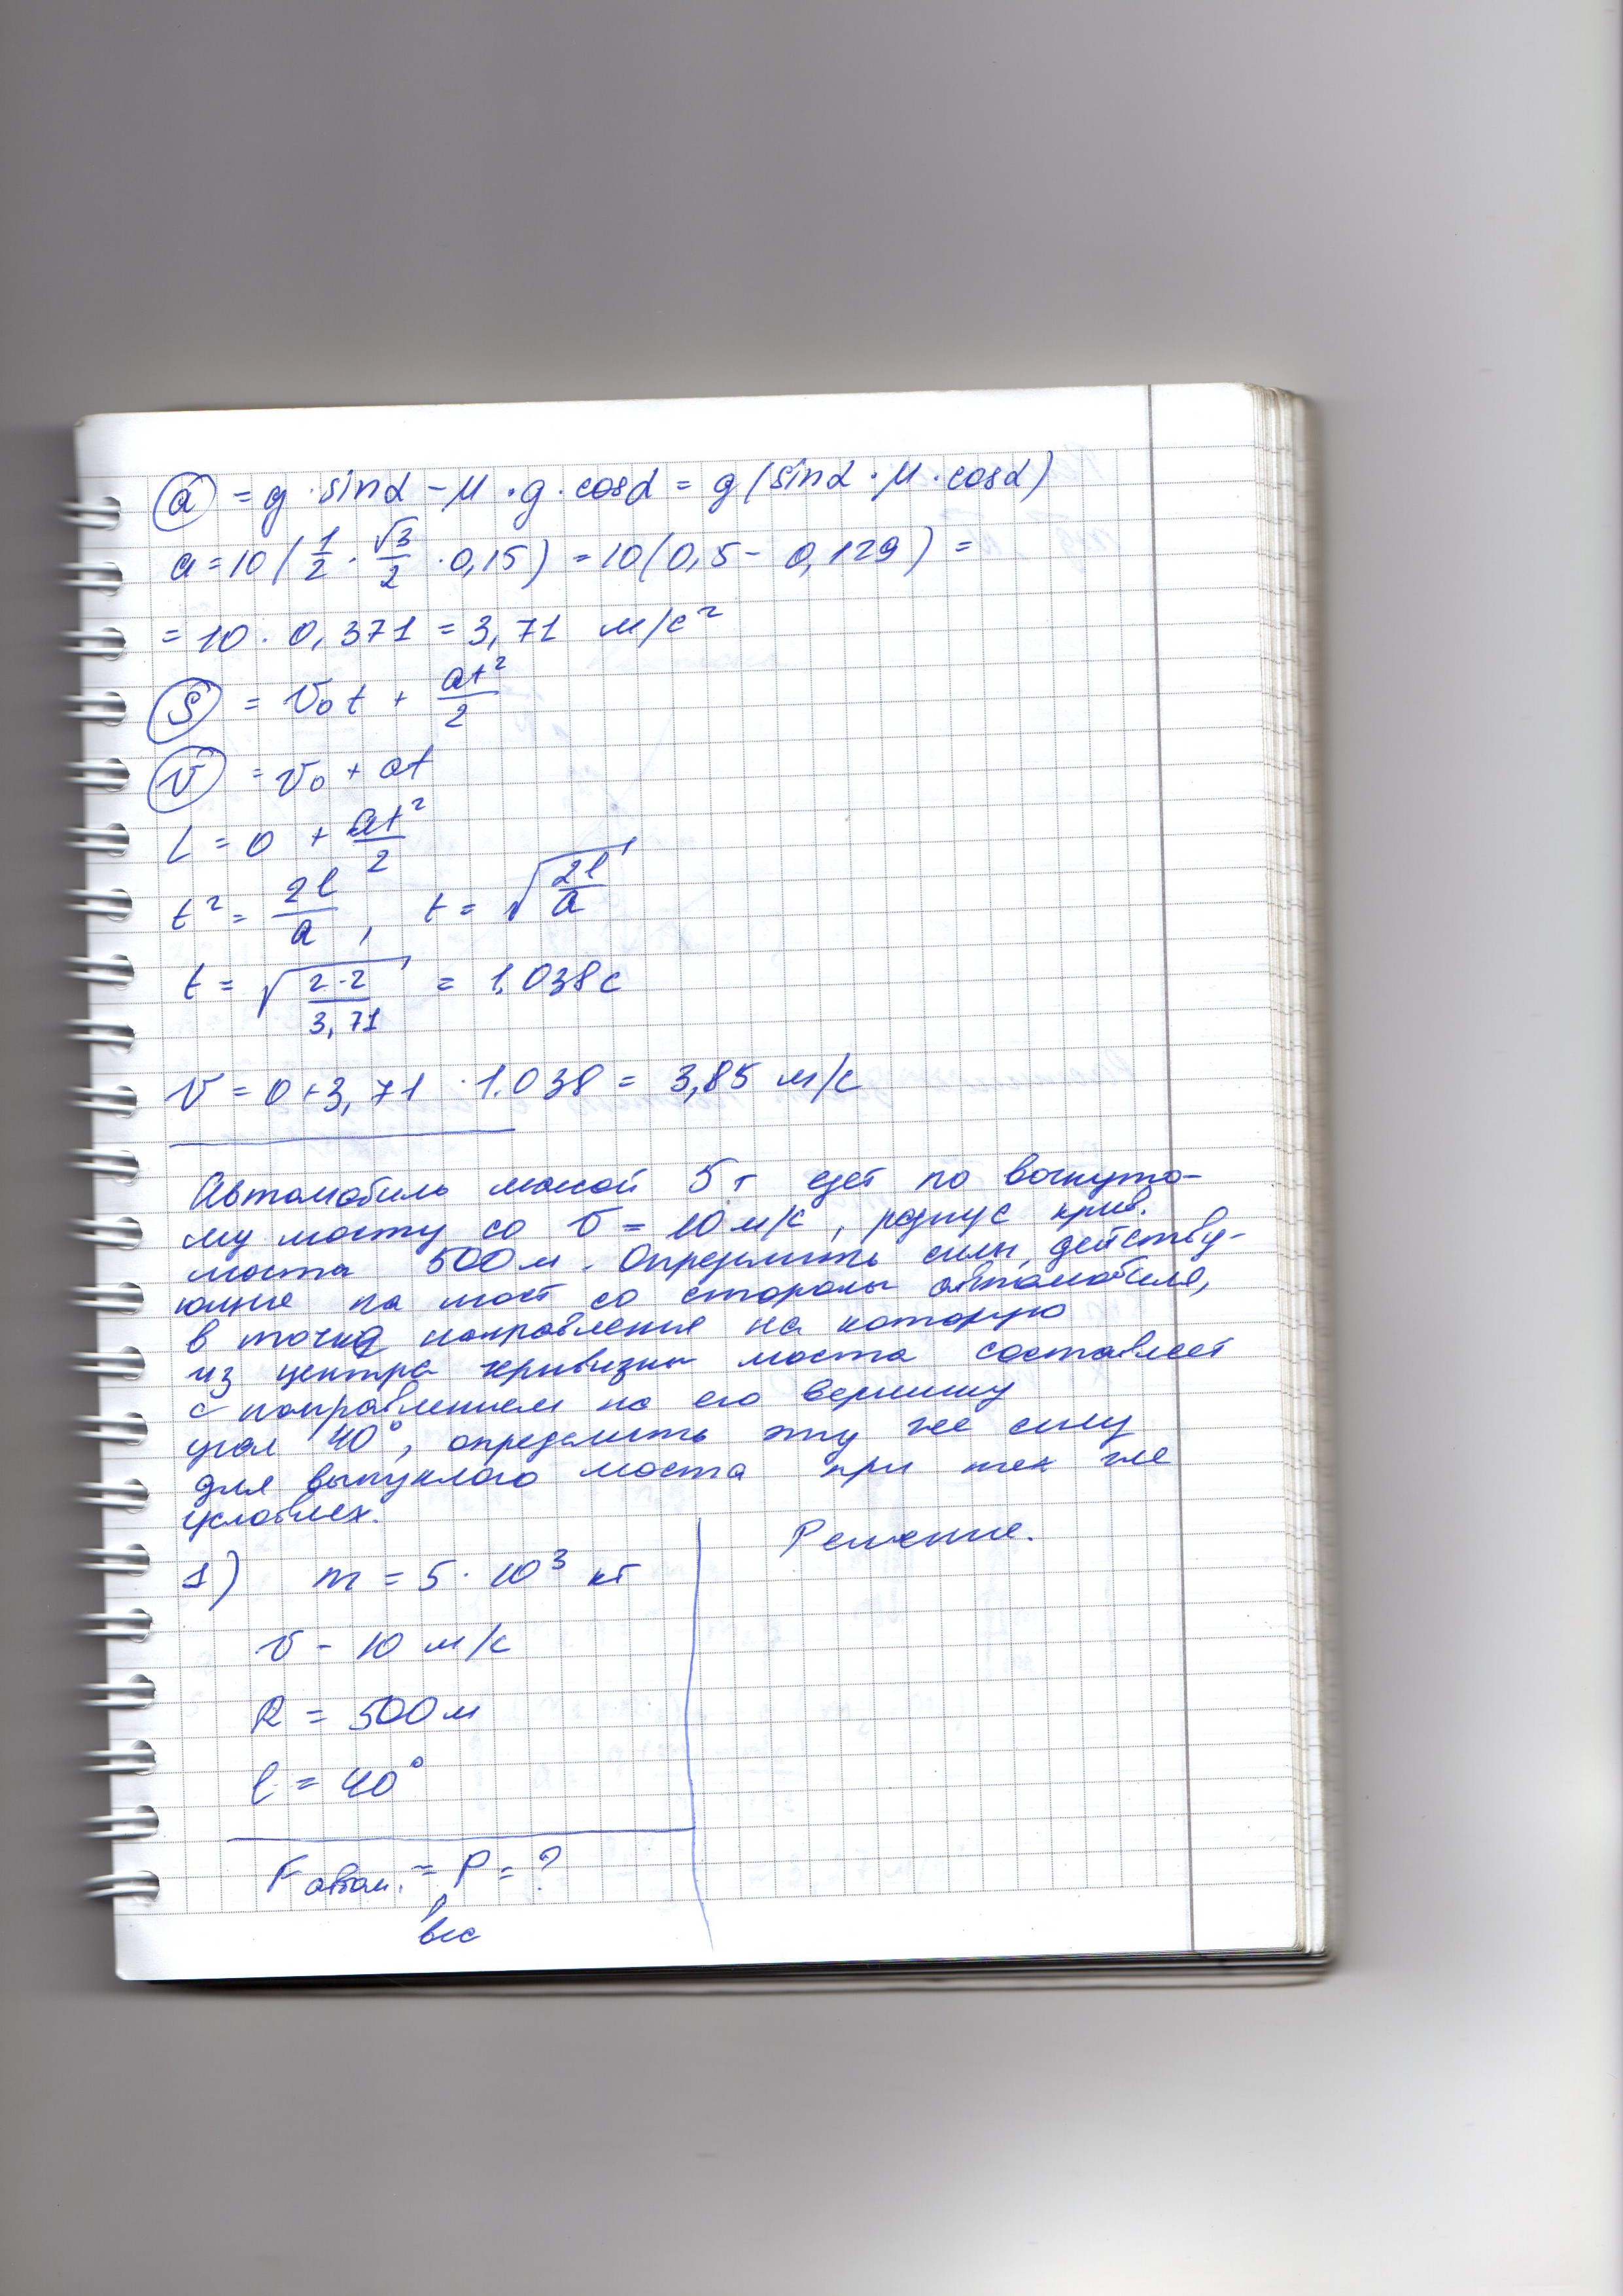 a = g · sinα − μ · g · cosα = g (sinα · μ · cosα)
a = 10 ( 1/2 · √3/2 · 0,15 ) = 10 (0,5 − 0,129) =
= 10 · 0,371 = 3,71 м/с²
S = v₀t + at²/2
v = v₀ + at
L = 0 + at²/2
t² = 2l/a , t = √(2l/a)
t = √(2·2/3,71) = 1.038 с
v = 0 + 3,71 · 1.038 = 3,85 м/с
Автомобиль массой 5 т едет по вогнуто-
му мосту со v = 10 м/с, радиус крив.
моста 500 м. Определить силы, действу-
ющие на мост со стороны автомобиля,
в точке направления на которую
из центра кривизны моста составляет
с направлением на его вершину
угол 40°, определить эту же силу
для выпуклого моста при тех же
условиях.
Решение.
1) m = 5 · 10³ кг
v - 10 м/с
R = 500 м
l = 40°
F автом. = P = ?
вес